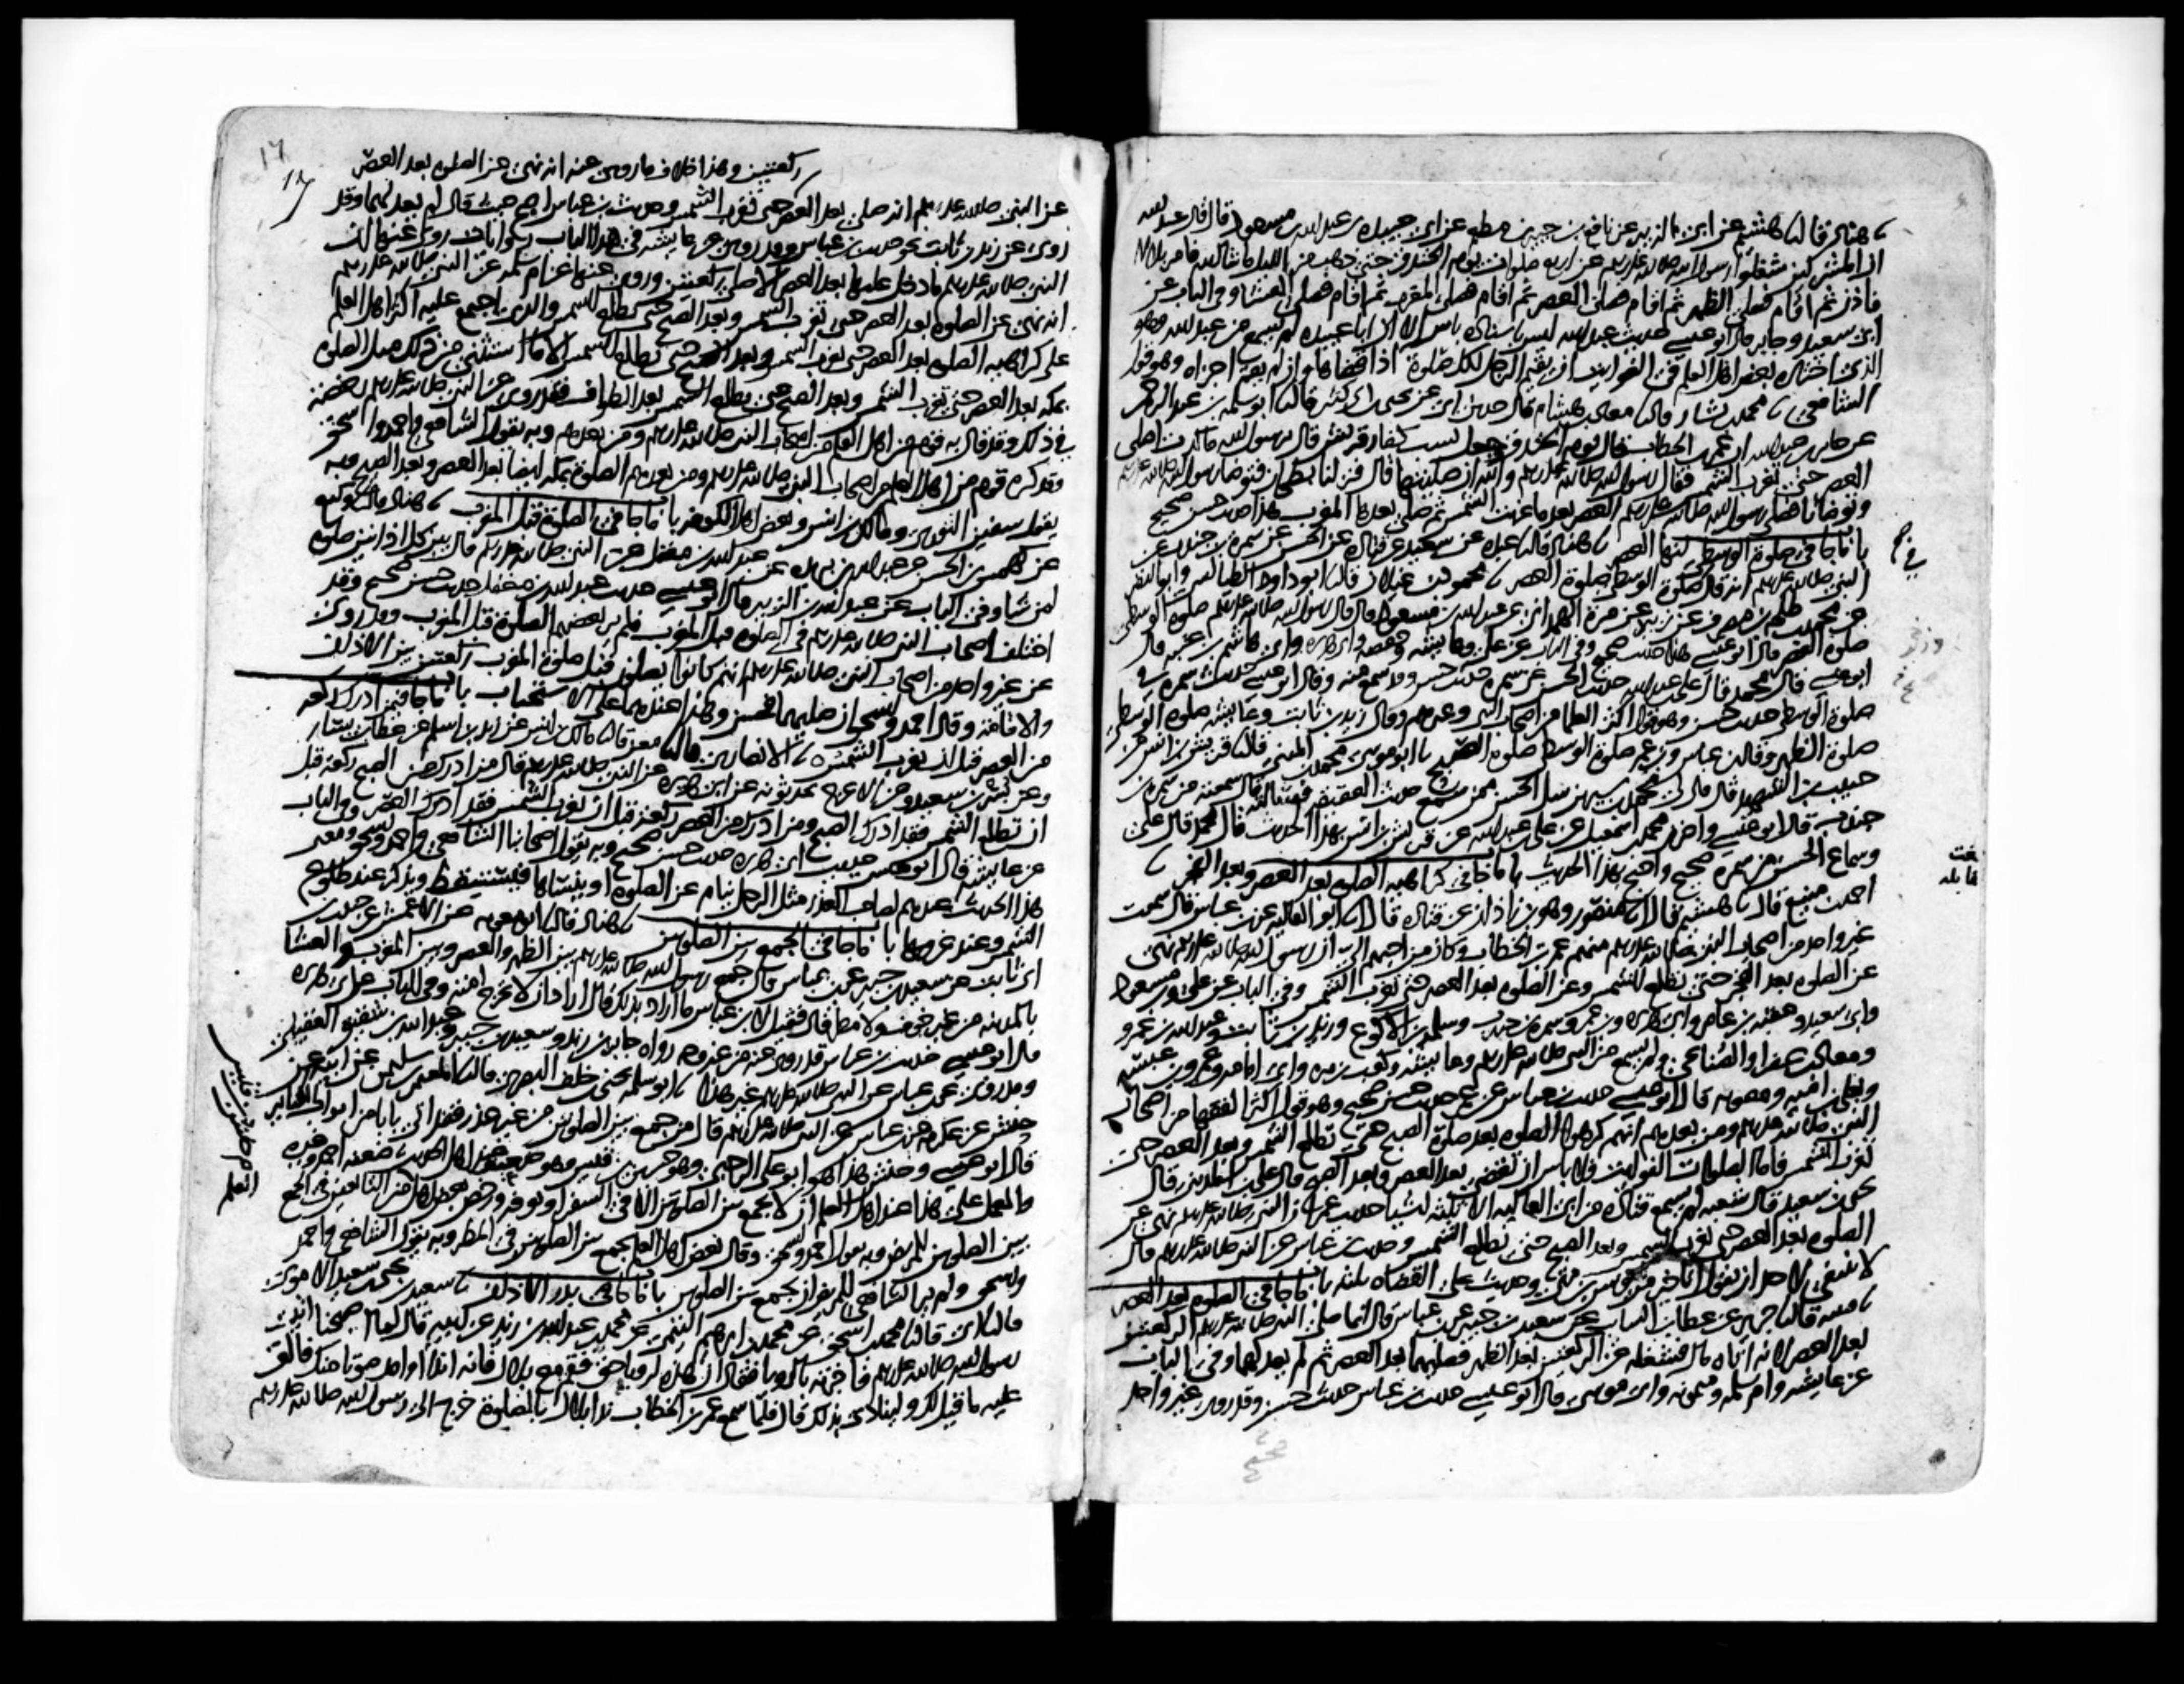 نا هناد قال نا هشيم عن ابى الزبير عن نافع بن جبير بن مطعم عن ابى عبيده بن عبدالله بن مسعود قال قال عبدالله
ان المشركين شغلوا رسول الله صلى الله عليه وسلم عن اربع صلوات يوم الخندق حتى ذهب من الليل ما شا الله فامر بلالا
فاذن ثم اقام فصلى الظهر ثم اقام فصلى العصر ثم اقام فصلى المغرب ثم اقام فصلى العشا وفى الباب عن
ابى سعيد وجابر قال ابو عيسى حديث عبدالله ليس باسناده باس الا ان ابا عبيده لم يسمع من عبدالله وهو
الذى اختاره بعض اهل العلم فى الفوايت ان يقيم الرجل لكل صلوة اذا قضاها وان لم يقم اجزاه وهو قول
الشافعى نا محمد بن بشار قال نا معاذ بن هشام قال حدثنى ابى عن يحيى بن ابى كثير قال نا ابو سلمه بن عبدالرحمن
عن جابر بن عبدالله ان عمر بن الخطاب قال يوم الخندق وجعل يسب كفار قريش قال يرسول الله ما كدت اصلى
العصر حتى تغرب الشمس فقال رسول الله صلى الله عليه وسلم والله ان صليتها قال فنزلنا بطحان فتوضا رسول الله صلى الله عليه وسلم
وتوضانا فصلى رسول الله صلى الله عليه وسلم العصر بعد ما غربت الشمس ثم صلى بعدها المغرب هذا حديث حسن صحيح
باب ما جا فى صلوة الوسطى انها العصر نا هناد قال نا عبده عن سعيد عن قتاده عن الحسن عن سمرة بن جندب عن
النبى صلى الله عليه وسلم انه قال صلوة الوسطى صلوة العصر نا محمود بن غيلان قال نا ابو داود الطيالسى وابو النضر
عن محمد بن طلحه بن مصرف عن زبيد عن مرة الهمدانى عن عبدالله بن مسعود قال قال رسول الله صلى الله عليه وسلم صلوة الوسطى
صلوة العصر قال ابو عيسى هذا حديث صحيح وفى الباب عن على وعايشه وحفصه وابى هريره وابى هاشم بن عتبه قال
ابو عيسى قال محمد قال على بن عبدالله حديث الحسن عن سمره حديث حسن وقد سمع منه وقال ابو عيسى حديث سمره فى
صلوة الوسطى حديث حسن وهو قول اكثر العلما من اصحاب النبى وغيرهم وقال زيد بن ثابت وعايشه صلوة الوسطى
صلوة الظهر وقال ابن عباس وابن عمر صلوة الوسطى صلوة الصبح نا ابو موسى محمد بن المثنى قال نا قريش بن انس عن
حبيب بن الشهيد قال قال لى محمد بن سيرين سل الحسن ممن سمع حديث العقيقه فسالته فقال سمعته من سمرة بن
جندب قال ابو عيسى واخبرنى محمد بن اسمعيل عن على بن عبدالله عن قريش بن انس بهذا الحديث قال محمد قال على
وسماع الحسن من سمرة صحيح واحتج بهذا الحديث باب ما جا فى كراهيه الصلوة بعد العصر وبعد الفجر نا
احمد بن منيع قال نا هشيم قال انا منصور وهو بن زاذان عن قتاده قال انا ابو العاليه عن ابن عباس قال سمعت
غير واحد من اصحاب النبى صلى الله عليه وسلم منهم عمر بن الخطاب وكان من احبهم الى ان رسول الله صلى الله عليه وسلم نهى
عن الصلوه بعد الفجر حتى تطلع الشمس وعن الصلوه بعد العصر حتى تغرب الشمس وفى الباب عن على وابن مسعود
وابى سعيد وعقبه بن عامر وابى هريره وابن عمر وسمره بن جندب وسلمه بن الاكوع وزيد بن ثابت وعبدالله بن عمرو
ومعاذ بن عفرا والصنابحى ولم يسمع من النبى صلى الله عليه وسلم وعايشه وكعب بن مره وابى امامه وعمرو بن عبسه
ويعلى بن اميه ومعويه قال ابو عيسى حديث ابن عباس عن عمر حديث حسن صحيح وهو قول اكثر الفقها من اصحاب
النبى صلى الله عليه وسلم ومن بعدهم انهم كرهوا الصلوه بعد صلوة الصبح حتى تطلع الشمس وبعد العصر حتى
تغرب الشمس فاما الصلوات الفوايت فلا باس ان تقضى بعد العصر وبعد الصبح قال على بن المدينى قال
يحيى بن سعيد قال شعبه لم يسمع قتاده من ابى العاليه الا ثلثه اشيا حديث عمر ان النبى صلى الله عليه وسلم نهى عن
الصلوه بعد العصر حتى تغرب الشمس وبعد الصبح حتى تطلع الشمس وحديث ابن عباس عن النبى صلى الله عليه وسلم قال
لا ينبغى لاحد ان يقول انا خير من يونس بن متى وحديث على القضاه ثلثه باب ما جا فى الصلوة بعد العصر
نا قتيبه قال نا جرير عن عطا بن السايب عن سعيد بن جبير عن ابن عباس قال انما صلى النبى صلى الله عليه وسلم الركعتين
بعد العصر لانه اتاه مال فشغله عن الركعتين بعد الظهر فصلاهما بعد العصر ثم لم يعد لهما وفى الباب
عن عايشه وام سلمه وميمونه وابى موسى قال ابو عيسى حديث ابن عباس حديث حسن وقد روى غير واحد
بلغت
مقابله
١٧
عن النبى صلى الله عليه وسلم انه صلى بعد العصر ركعتين وهذا خلاف ما روى عنه انه نهى عن الصلوه بعد العصر
حتى تغرب الشمس وحديث ابن عباس اصح حيث قال لم يعد لهما وقد
روى عن زيد بن ثابت نحو حديث ابن عباس وقد روى عن عايشه فى هذا الباب روايات روى عنها ان
النبى صلى الله عليه وسلم ما دخل عليها بعد العصر الا صلى ركعتين وروى عنها عن ام سلمه عن النبى صلى الله عليه وسلم
انه نهى عن الصلوه بعد العصر حتى تغرب الشمس وبعد الصبح حتى تطلع الشمس والذى اجتمع عليه اكثر اهل العلم
على كراهيه الصلوه بعد العصر حتى تغرب الشمس وبعد الصبح حتى تطلع الشمس الا ما استثنى من ذلك مثل الصلوه
بمكه بعد العصر حتى تغرب الشمس وبعد الصبح حتى تطلع الشمس بعد الطواف فقد روى عن النبى صلى الله عليه وسلم رخصه
فى ذلك وقد قال به قوم من اهل العلم من اصحاب النبى صلى الله عليه وسلم ومن بعدهم وبه يقول الشافعى واحمد واسحق
وقد كره قوم من اهل العلم من اصحاب النبى صلى الله عليه وسلم ومن بعدهم الصلوة بمكه ايضا بعد العصر وبعد الصبح وبه
يقول سفين الثورى ومالك بن انس وبعض اهل الكوفه باب ما جا فى الصلوة قبل المغرب نا هناد قال نا وكيع
عن كهمس بن الحسن عن عبدالله بن بريده عن عبدالله بن مغفل عن النبى صلى الله عليه وسلم قال بين كل اذانين صلوة
لمن شا وفى الباب عن عبدالله بن الزبير قال ابو عيسى حديث عبدالله بن مغفل حديث حسن صحيح وقد
اختلف اصحاب النبى صلى الله عليه وسلم فى الصلوه قبل المغرب فلم ير بعضهم الصلوة قبل المغرب وقد روى
عن غير واحد من اصحاب النبى صلى الله عليه وسلم انهم كانوا يصلون قبل صلوة المغرب ركعتين بين الاذان
والاقامه وقال احمد واسحق ان صلاهما فحسن وهذا عندهما على الاستحباب باب ما جا فيمن ادرك ركعه
من العصر قبل ان تغرب الشمس نا الانصارى قال نا معن قال نا مالك بن انس عن زيد بن اسلم عن عطا بن يسار
وعن بسر بن سعيد وعن الاعرج يحدثونه عن ابى هريره عن النبى صلى الله عليه وسلم قال من ادرك من الصبح ركعه قبل
ان تطلع الشمس فقد ادرك الصبح ومن ادرك من العصر ركعه قبل ان تغرب الشمس فقد ادرك العصر وفى الباب
عن عايشه قال ابو عيسى حديث ابى هريره حديث حسن صحيح وبه يقول اصحابنا الشافعى واحمد واسحق ومعنى
هذا الحديث عندهم لصاحب العذر مثل الرجل ينام عن الصلوه او ينساها فيستيقظ ويذكر عند طلوع
الشمس وعند غروبها باب ما جا فى الجمع بين الصلوتين نا هناد قال نا ابو معويه عن الاعمش عن حبيب
بن ابى ثابت عن سعيد بن جبير عن ابن عباس قال جمع رسول الله صلى الله عليه وسلم بين الظهر والعصر وبين المغرب والعشا
بالمدينه من غير خوف ولا مطر قال فقيل لابن عباس ما اراد بذلك قال اراد ان لا يحرج امته وفى الباب عن ابى هريره
قال ابو عيسى حديث ابن عباس قد روى عنه من غير وجه رواه جابر بن زيد وسعيد بن جبير وعبدالله بن شقيق العقيلى
وقد روى عن ابن عباس عن النبى صلى الله عليه وسلم غير هذا نا ابو سلمه يحيى بن خلف البصرى قال نا المعتمر بن سليمن عن ابيه عن
حنش عن عكرمه عن ابن عباس عن النبى صلى الله عليه وسلم قال من جمع بين الصلوتين من غير عذر فقد اتى بابا من ابواب الكباير
قال ابو عيسى وحنش هذا هو ابو على الرحبى وهو حسين بن قيس وهو ضعيف عند اهل الحديث ضعفه احمد وغيره
والعمل على هذا عند اهل العلم ان لا يجمع بين الصلوتين الا فى السفر او بعرفه ورخص بعض اهل العلم من التابعين فى الجمع
بين الصلوتين للمريض وبه يقول احمد واسحق وقال بعض اهل العلم يجمع بين الصلوتين فى المطر وبه يقول الشافعى واحمد
واسحق ولم ير الشافعى للمريض ان يجمع بين الصلوتين باب ما جا فى بدو الاذان نا سعيد بن يحيى بن سعيد الاموى
قال نا ابى قال نا محمد بن اسحق عن محمد بن ابرهيم التيمى عن محمد بن عبدالله بن زيد عن ابيه قال لما اصبحنا اتينا
رسول الله صلى الله عليه وسلم فاخبرته بالرويا فقال ان هذه لرويا حق فقم مع بلال فانه اندا وامد صوتا منك فالق
عليه ما قيل لك ولينادى بذلك قال فلما سمع عمر بن الخطاب ندا بلال بالصلوة خرج الى رسول الله صلى الله عليه وسلم